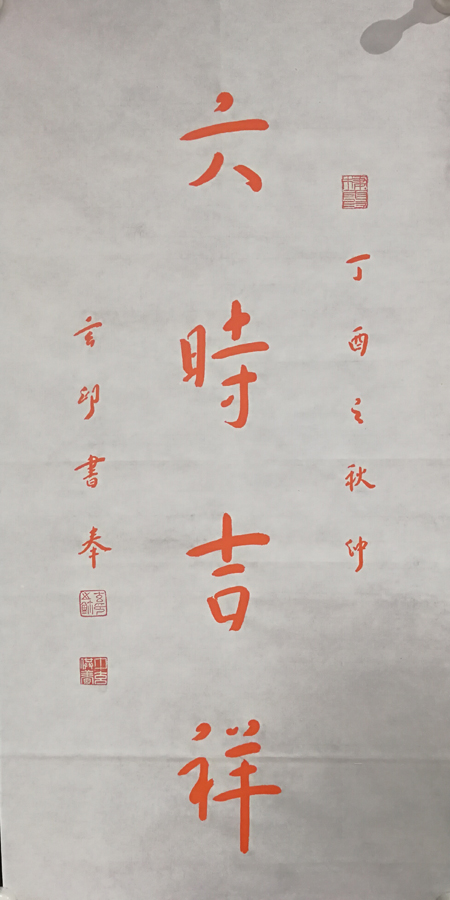 丁酉之秋仲
六時吉祥
玄印書奉